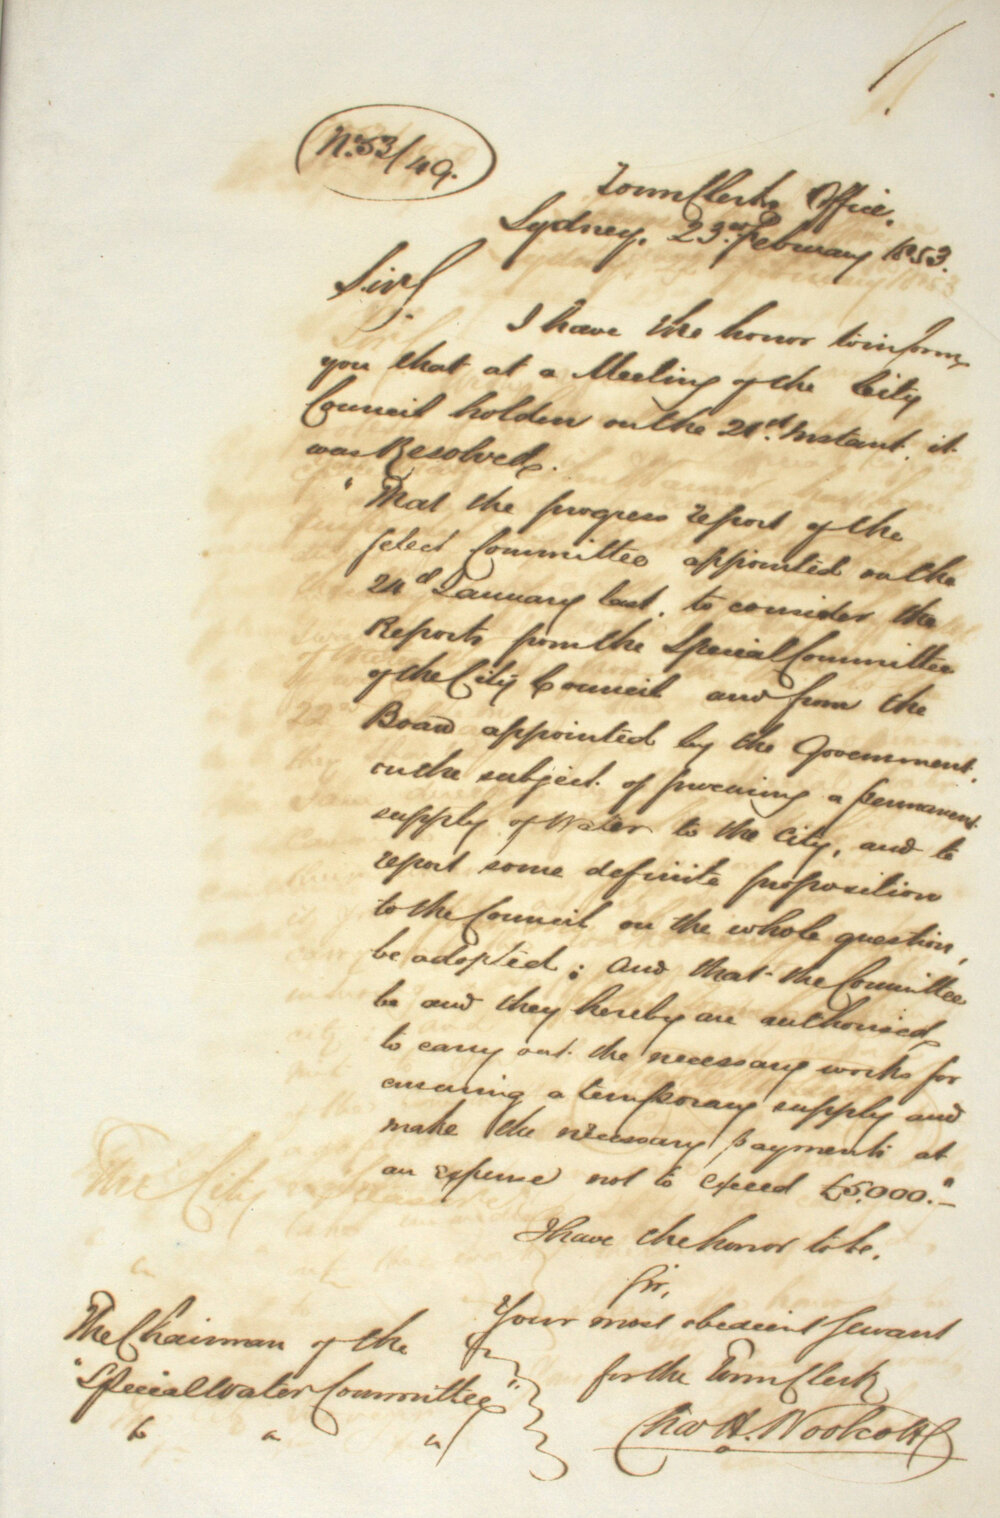 No. 53/49.
Town Clerk's Office.
Sydney, 23rd. February 1853.
Sir,
I have the honor to inform
you that at a Meeting of the City
Council holden on the 21st. Instant, it
was Resolved.
"That the progress report of the
Select Committee appointed on the
24th January last, to consider the
Reports from the Special Committee
of the City Council and from the
Board appointed by the Government,
on the subject of procuring a permanent
supply of Water to the City, and to
report some definite proposition
to the Council on the whole question,
be adopted; and that the Committee
be and they hereby are authorised
to carry out the necessary works for
ensuring a temporary supply and
make the necessary payments at
an expense not to exceed £5,000." —
I have the honor to be,
Sir,
Your most obedient Servant
for the Town Clerk
Chas H. Woolcott
The Chairman of the
"Special Water Committee"